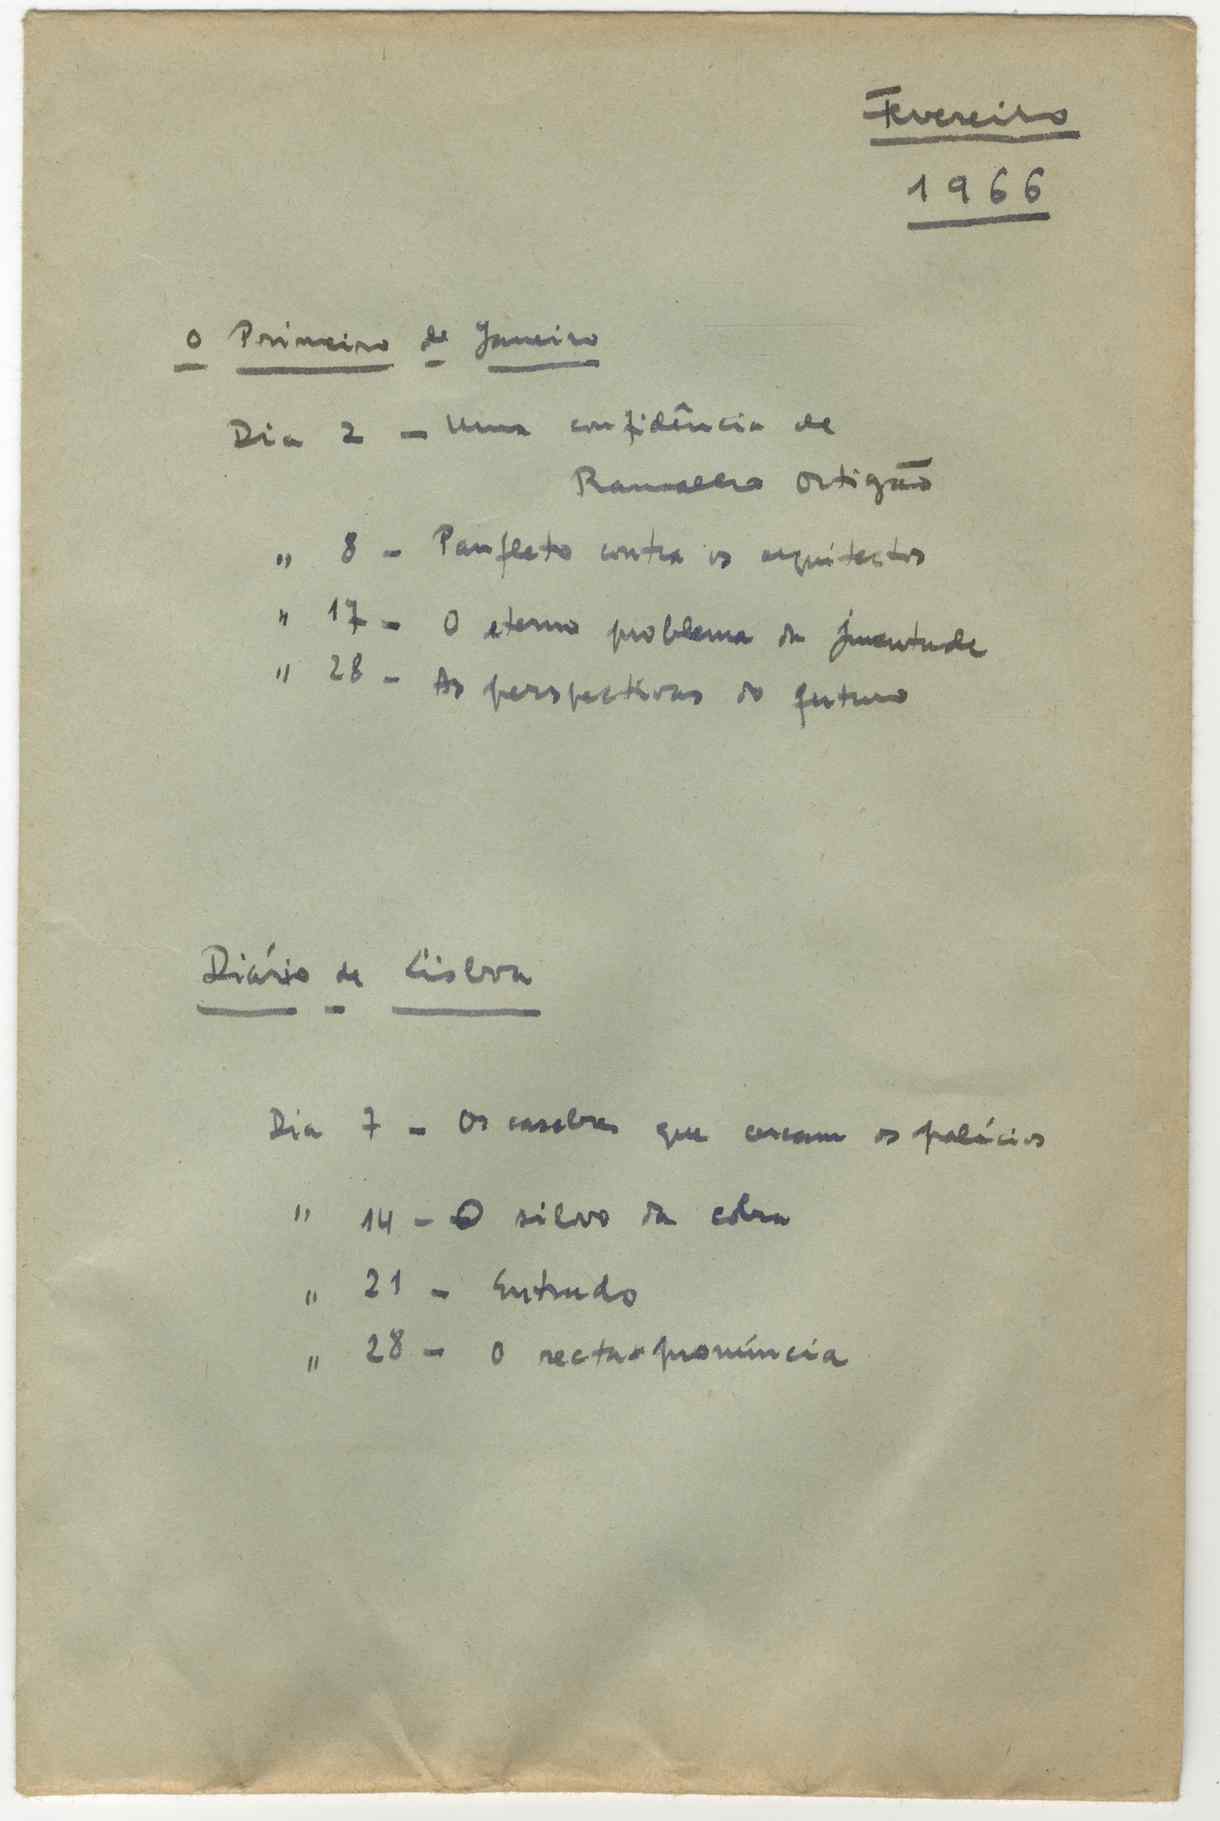 Fevereiro
1966
O Primeiro de Janeiro
Dia 2 - Uma confidência de
Ramalho Ortigão
" 8 - Panfleto contra os arquitectos
" 17 - O eterno problema da juventude
" 28 - As perspectivas do futuro
Diário de Lisboa
Dia 7 - Os casebres que cercam os palácios
" 14 - O silvo da cobra
" 21 - Entrudo
" 28 - O recta-pronúncia